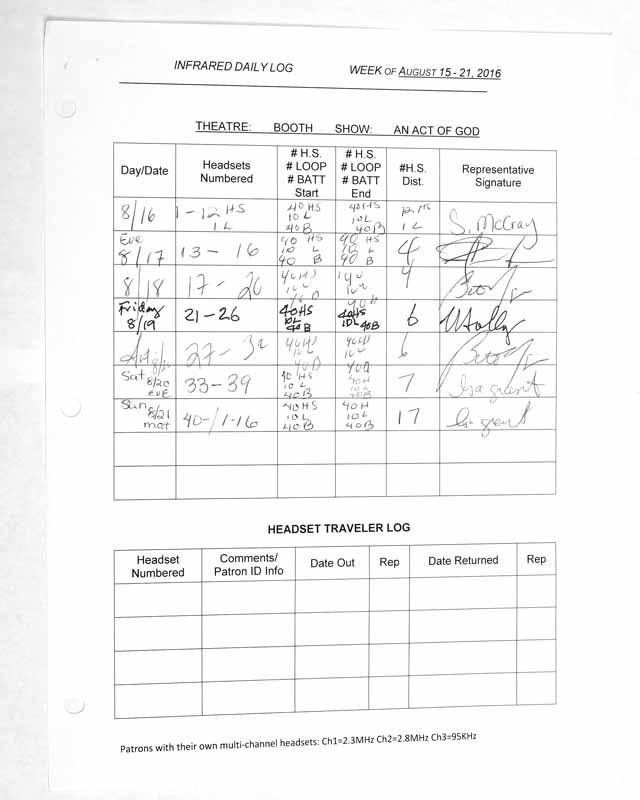 INFRARED DAILY LOG WEEK OF AUGUST 15 - 21, 2016
THEATRE: BOOTH SHOW: AN ACT OF GOD
Day/Date
Headsets
Numbered
# H.S.
# LOOP
# BATT
Start
# H.S.
# LOOP
# BATT
End
#H.S.
Dist.
Representative
Signature
8/16
1 - 12 HS
1 L
40 HS
10 L
40 B
40 HS
10 L
40 B
12 HS
1 L
S. McCray
Eve
8/17
13 - 16
40 HS
10 L
40 B
40 HS
10 L
40 B
4
8/18
17 - 20
40 HS
4
Friday
8/19
21 - 26
40HS
10L
40B
40HS
10L 40B
6
8/20
27 - 32
40HS
40H
6
Sat 8/20
eve
33 - 39
40 HS
10 L
40B
40H
10 L
40B
7
Isa grant
Sun 8/21
mat
40 - / 1-16
40HS
10L
40B
40H
10L
40B
17
Isa grant
HEADSET TRAVELER LOG
Headset
Numbered
Comments/
Patron ID Info
Date Out
Rep
Date Returned
Rep
Patrons with their own multi-channel headsets: Ch1=2.3MHz Ch2=2.8MHz Ch3=95KHz